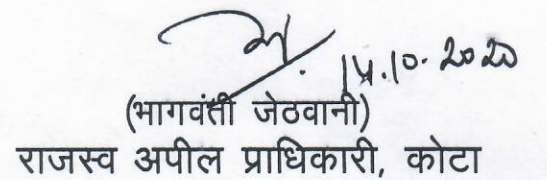 14.10.2020
(भागवंती जेठवानी)
राजस्व अपील प्राधिकारी, कोटा